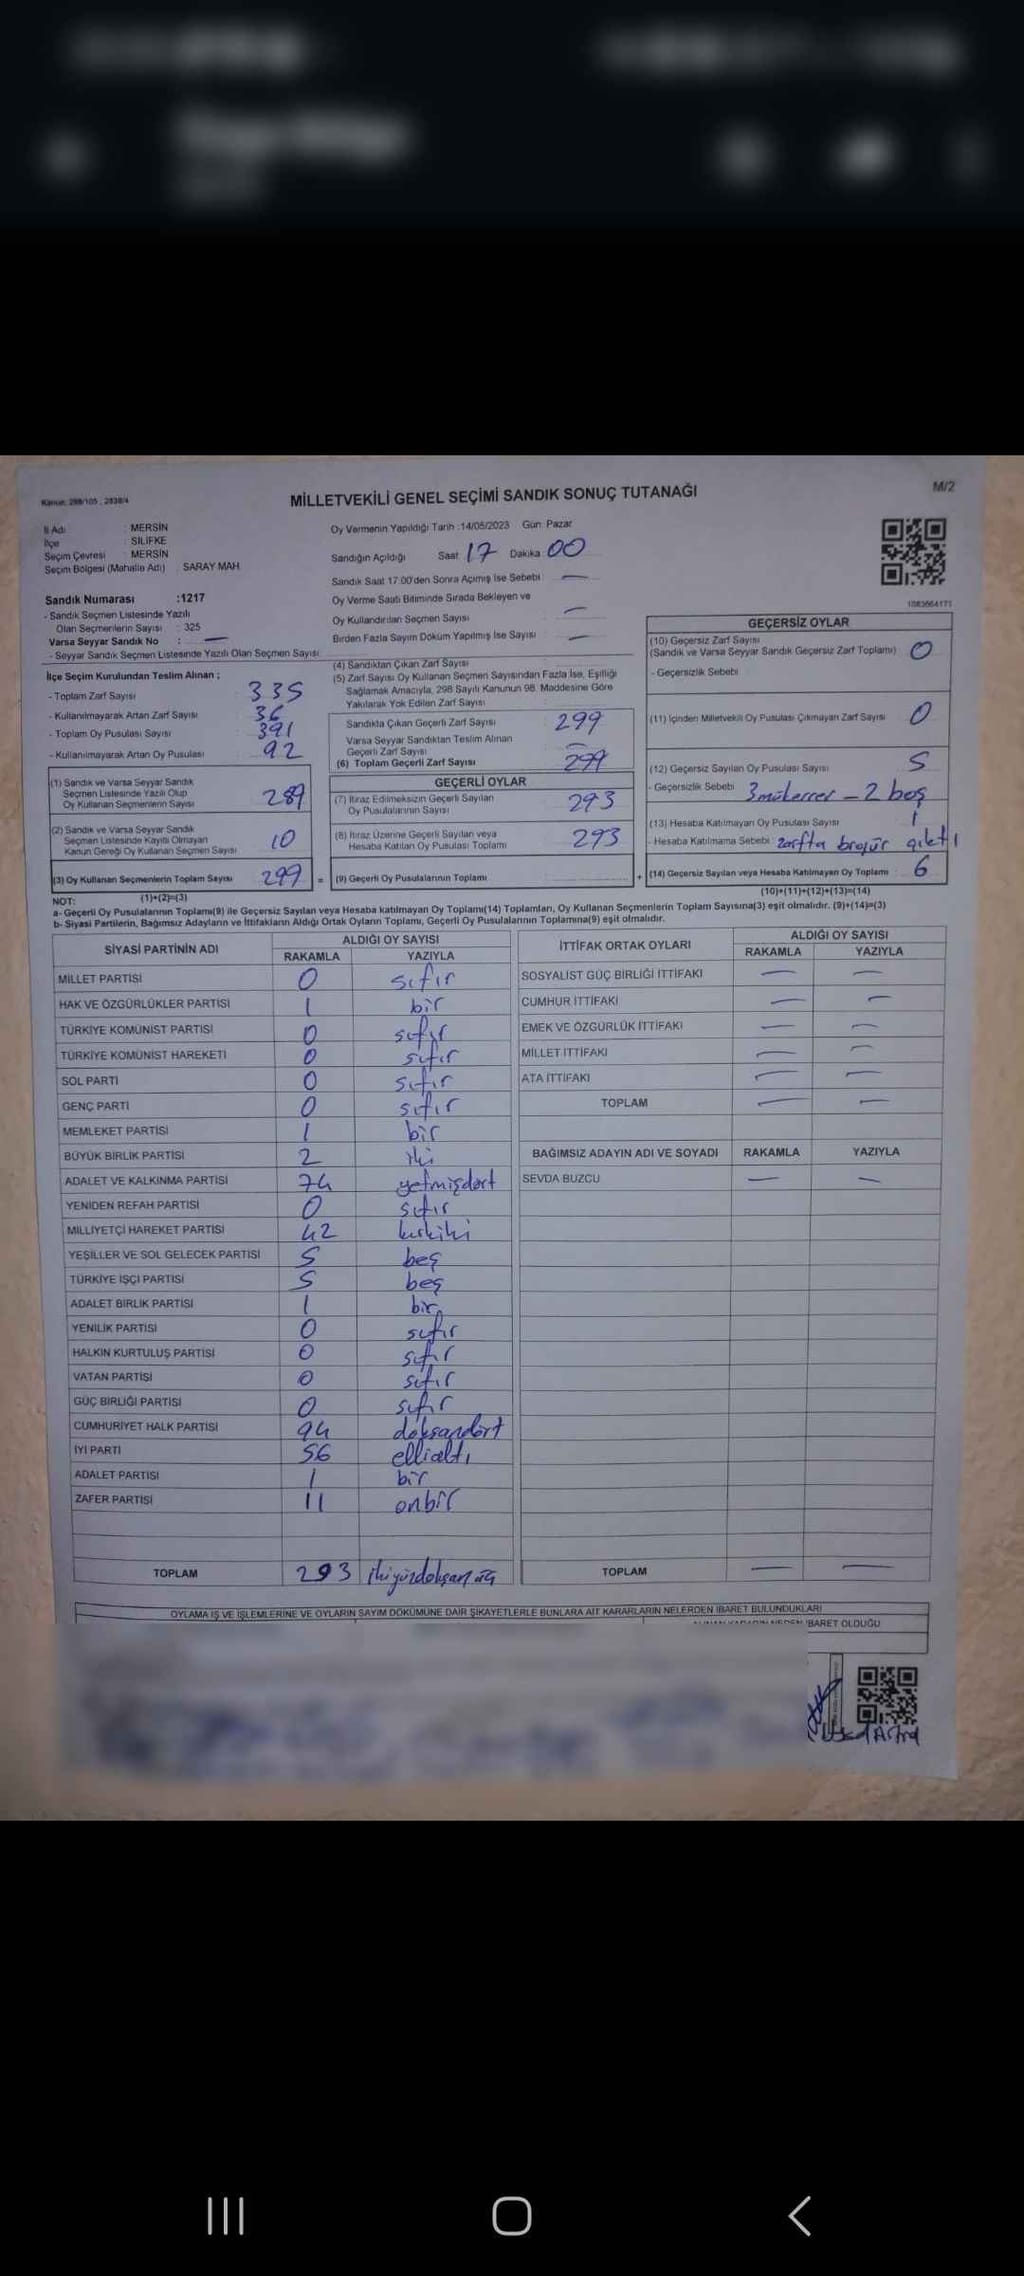 Kanun: 298/105, 2839/4
MİLLETVEKİLİ GENEL SEÇİMİ SANDIK SONUÇ TUTANAĞI
M/2
İl Adı : MERSİN
İlçe : SİLİFKE
Seçim Çevresi : MERSİN
Seçim Bölgesi (Mahalle Adı) SARAY MAH.
Sandık Numarası :1217
- Sandık Seçmen Listesinde Yazılı
Olan Seçmenlerin Sayısı : 325
Varsa Seyyar Sandık No : —
- Seyyar Sandık Seçmen Listesinde Yazılı Olan Seçmen Sayısı:
Oy Vermenin Yapıldığı Tarih :14/05/2023 Gün: Pazar
Sandığın Açıldığı Saat 17 Dakika 00
Sandık Saat 17.00'den Sonra Açımış İse Sebebi —
Oy Verme Saati Bitiminde Sırada Bekleyen ve
Oy Kullandırılan Seçmen Sayısı —
Birden Fazla Sayım Döküm Yapılmış İse Sayısı —
1083664171
İlçe Seçim Kurulundan Teslim Alınan ;
- Toplam Zarf Sayısı : 335
- Kullanılmayarak Artan Zarf Sayısı : 36
- Toplam Oy Pusulası Sayısı : 391
- Kullanılmayarak Artan Oy Pusulası : 92
(1) Sandık ve Varsa Seyyar Sandık
Seçmen Listesinde Yazılı Olup
Oy Kullanan Seçmenlerin Sayısı : 289
(2) Sandık ve Varsa Seyyar Sandık
Seçmen Listesinde Kayıtlı Olmayan
Kanun Gereği Oy Kullanan Seçmen Sayısı : 10
(3) Oy Kullanan Seçmenlerin Toplam Sayısı : 299 =
(4) Sandıktan Çıkan Zarf Sayısı
(5) Zarf Sayısı Oy Kullanan Seçmen Sayısından Fazla İse, Eşitliği
Sağlamak Amacıyla, 298 Sayılı Kanunun 98. Maddesine Göre
Yakılarak Yok Edilen Zarf Sayısı
Sandıkta Çıkan Geçerli Zarf Sayısı 299
Varsa Seyyar Sandıktan Teslim Alınan
Geçerli Zarf Sayısı —
(6) Toplam Geçerli Zarf Sayısı 299
GEÇERLİ OYLAR
(7) İtiraz Edilmeksizin Geçerli Sayılan
Oy Pusulalarının Sayısı : 293
(8) İtiraz Üzerine Geçerli Sayılan veya
Hesaba Katılan Oy Pusulası Toplamı : 293
(9) Geçerli Oy Pusulalarının Toplamı : +
GEÇERSİZ OYLAR
(10) Geçersiz Zarf Sayısı
(Sandık ve Varsa Seyyar Sandık Geçersiz Zarf Toplamı) : 0
- Geçersizlik Sebebi
(11) İçinden Milletvekili Oy Pusulası Çıkmayan Zarf Sayısı : 0
(12) Geçersiz Sayılan Oy Pusulası Sayısı : 5
- Geçersizlik Sebebi 3 mükerrer - 2 boş
(13) Hesaba Katılmayan Oy Pusulası Sayısı : 1
- Hesaba Katılmama Sebebi zarfta broşür çıktı
(14) Geçersiz Sayılan veya Hesaba Katılmayan Oy Toplamı : 6
NOT: (1)+(2)=(3) (10)+(11)+(12)+(13)=(14)
a- Geçerli Oy Pusulalarının Toplamı(9) ile Geçersiz Sayılan veya Hesaba katılmayan Oy Toplamı(14) Toplamları, Oy Kullanan Seçmenlerin Toplam Sayısına(3) eşit olmalıdır. (9)+(14)=(3)
b- Siyasi Partilerin, Bağımsız Adayların ve İttifakların Aldığı Ortak Oyların Toplamı, Geçerli Oy Pusulalarının Toplamına(9) eşit olmalıdır.
SİYASİ PARTİNİN ADI ALDIĞI OY SAYISI
RAKAMLA YAZIYLA
MİLLET PARTİSİ 0 sıfır
HAK VE ÖZGÜRLÜKLER PARTİSİ 1 bir
TÜRKİYE KOMÜNİST PARTİSİ 0 sıfır
TÜRKİYE KOMÜNİST HAREKETİ 0 sıfır
SOL PARTİ 0 sıfır
GENÇ PARTİ 0 sıfır
MEMLEKET PARTİSİ 1 bir
BÜYÜK BİRLİK PARTİSİ 2 iki
ADALET VE KALKINMA PARTİSİ 74 yetmişdört
YENİDEN REFAH PARTİSİ 0 sıfır
MİLLİYETÇİ HAREKET PARTİSİ 42 kırkiki
YEŞİLLER VE SOL GELECEK PARTİSİ 5 beş
TÜRKİYE İŞÇİ PARTİSİ 5 beş
ADALET BİRLİK PARTİSİ 1 bir
YENİLİK PARTİSİ 0 sıfır
HALKIN KURTULUŞ PARTİSİ 0 sıfır
VATAN PARTİSİ 0 sıfır
GÜÇ BİRLİĞİ PARTİSİ 0 sıfır
CUMHURİYET HALK PARTİSİ 94 doksandört
İYİ PARTİ 56 ellialtı
ADALET PARTİSİ 1 bir
ZAFER PARTİSİ 11 onbir
TOPLAM 293 ikiyüzdoksan üç
İTTİFAK ORTAK OYLARI ALDIĞI OY SAYISI
RAKAMLA YAZIYLA
SOSYALİST GÜÇ BİRLİĞİ İTTİFAKI — —
CUMHUR İTTİFAKI — —
EMEK VE ÖZGÜRLÜK İTTİFAKI — —
MİLLET İTTİFAKI — —
ATA İTTİFAKI — —
TOPLAM — —
BAĞIMSIZ ADAYIN ADI VE SOYADI RAKAMLA YAZIYLA
SEVDA BUZCU — —
TOPLAM — —
OYLAMA İŞ VE İŞLEMLERİNE VE OYLARIN SAYIM DÖKÜMÜNE DAİR ŞİKAYETLERLE BUNLARA AİT KARARLARIN NELERDEN İBARET BULUNDUKLARI
İBARET OLDUĞU